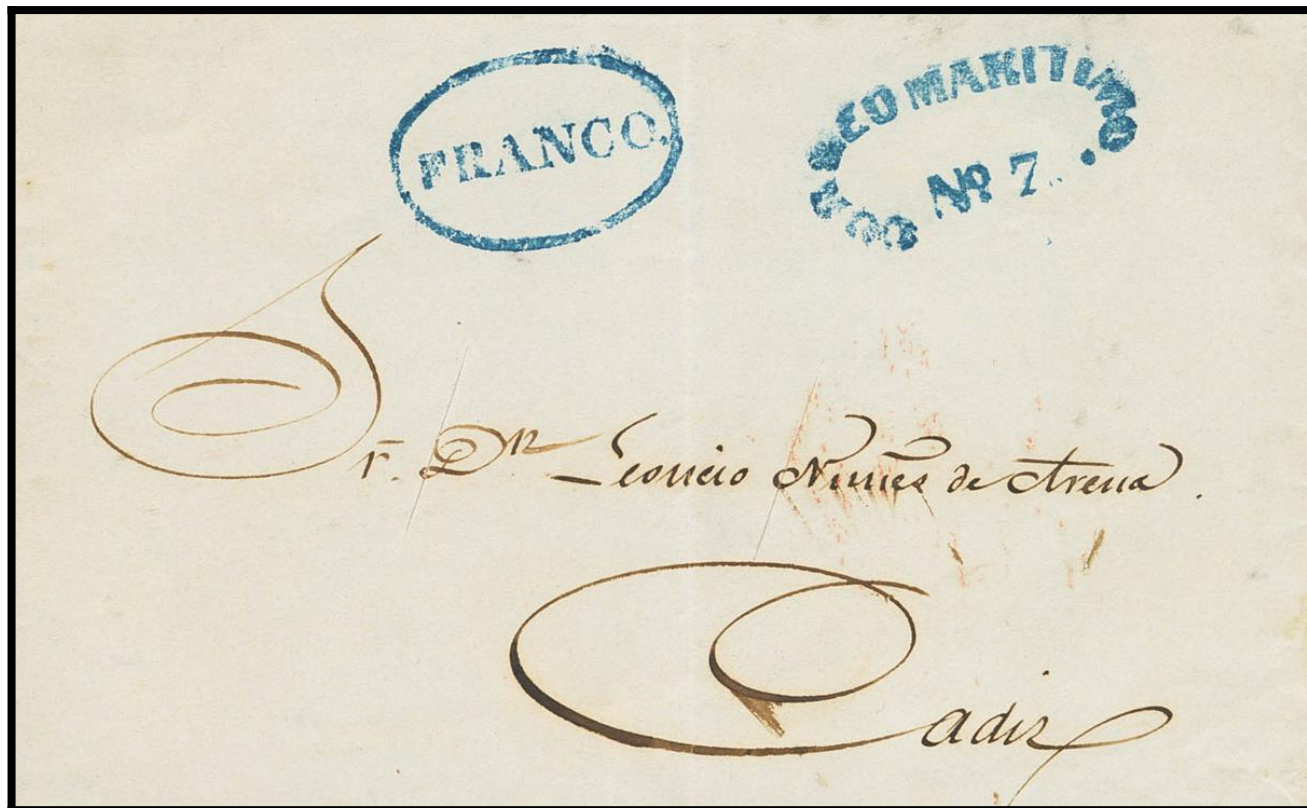 FRANCO.
CORREO MARITIMO.
Nº 7.
Sr. Dn Leoncio Nuñes de Arena.
Cadiz